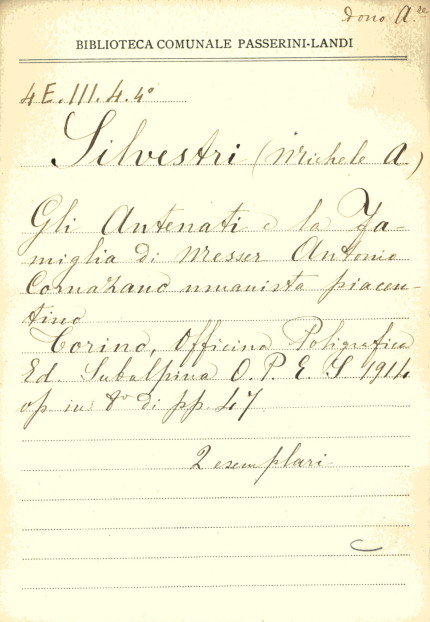 dono A.re
BIBLIOTECA COMUNALE PASSERINI-LANDI
4E.III.4.4°
Silvestri (Michele A.)
Gli Antenati e la Fa-
miglia di Messer Antonio
Cornazano umanista piacen-
tino
Torino, Officina Poligrafica
Ed. Subalpina O. P. E. S 1914
op in 8° di pp. 47
2 esemplari